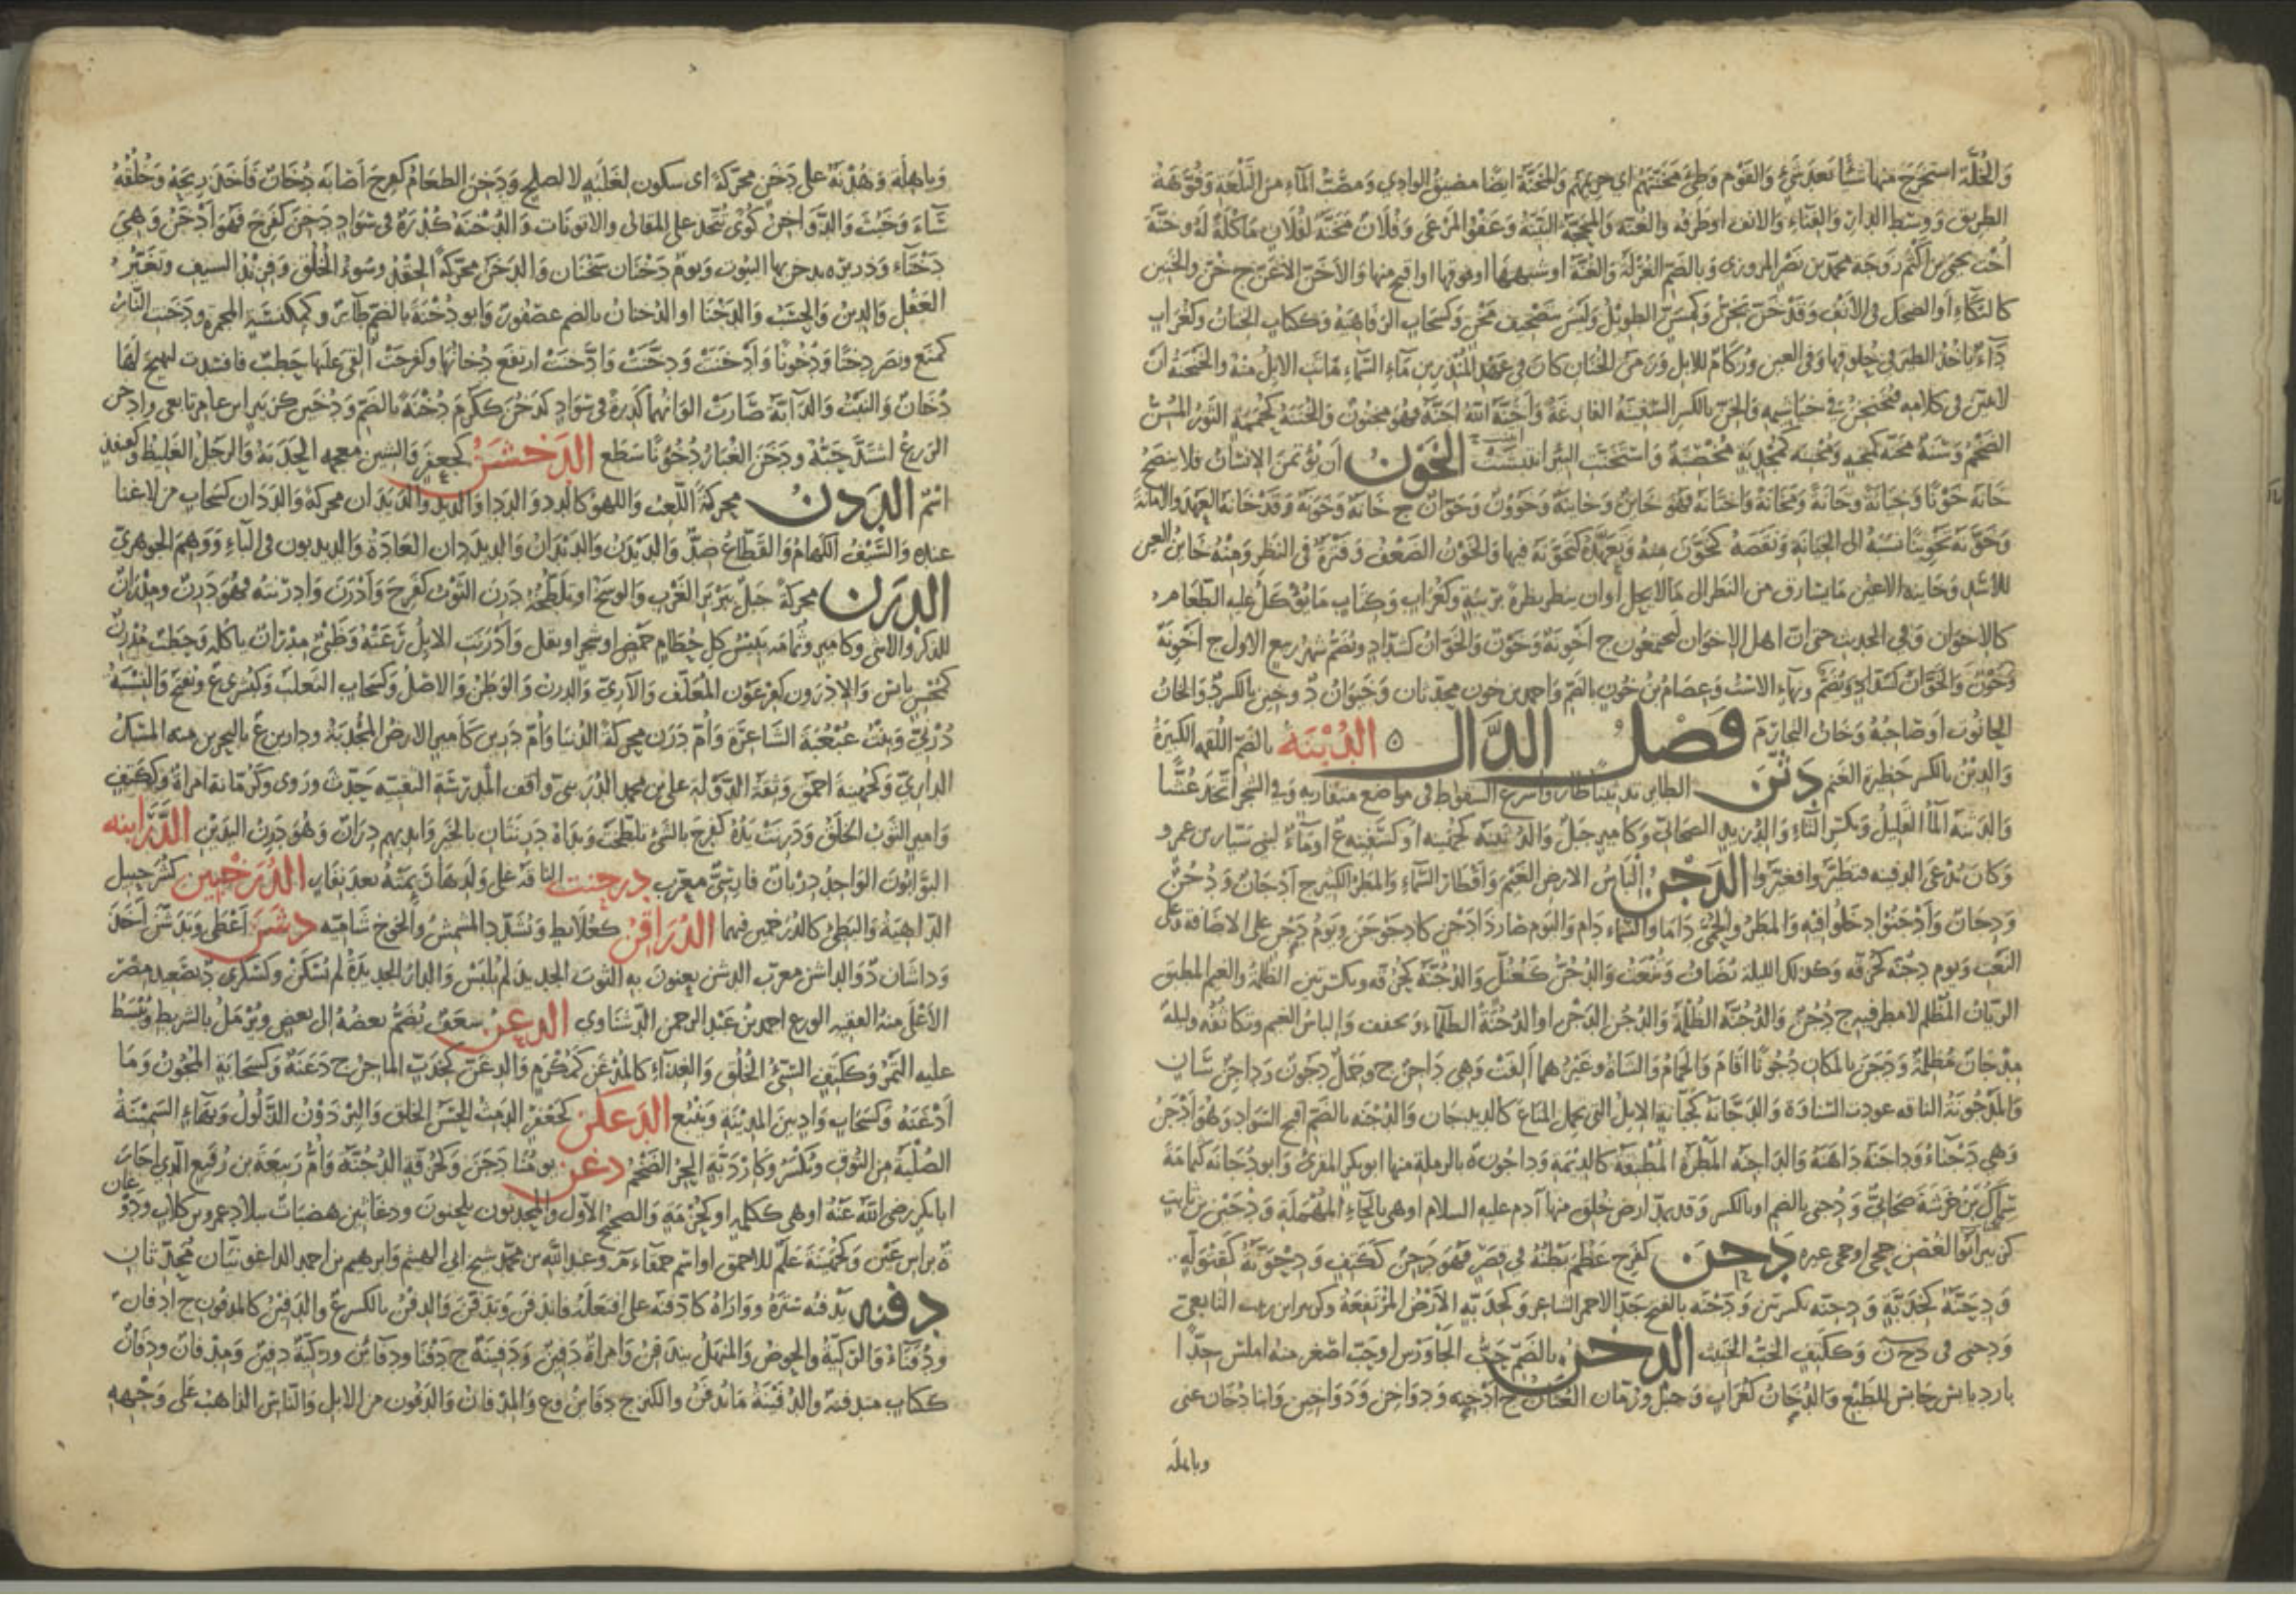 والجلة استخرج منها شيئا بعد شيء والقوم وطئ مخنتهم اي حريمهم والمخنة ايضا مضيق الوادي ومصب الماء من التلعة وفوهة
الطريق ووسط الدار والفناء والانف او طرفه والغنة والمحجة البينة وعفو المرعى وفلان مخنة لفلان مأكلة له وخنة
اخت يحيى بن اكثم زوجة محمد بن نصر المروزي وبالضم الغرلة والغنة او شبهها او فوقها او اقبح منها والاخن الاغن ج خن والخنين
كالبكاء او الضحك في الانف وقد خن يخن وكمسن الطويل وليس بتصحيف مخن وكسحاب الرفاهية وككتاب الختان وكغراب
داء ياخذ الطير في حلوقها وفي العين وزكام للابل وزمن الخنان كان في عهد المنذر بن ماء السماء ماتت الابل منه والخنخنة ان
لا يبين في كلامه فيخنخن في خياشيمه والخن بالكسر السفينة الفارغة واخنه الله اجنه فهو مخنون والخننة كحممة الثور المسن
الضخم وسنة مخنة كمجنة ومخنة كمحدثة مخصبة واستخنت البئر انتنت الخون ان يؤتمن الانسان فلا ينصح
خانه خونا وخيانة وخانة ومخانة واختانه فهو خائن وخائنة وخوون وخوان ج خانة وخونة وقد خانه العهد والامانة
وخونه تخوينا نسبه الى الخيانة ونقصه كخون منه وتعهده كتخونه فيهما والخون الضعف وفترة في النظر ومنه خائن العين
للاسد وخائنة الاعين ما يسارق من النظر الى ما لا يحل او ان ينظر نظرة بريبة وكغراب وكتاب ما يؤكل عليه الطعام
كالاخوان وفي الحديث حتى ان اهل الاخوان ليجتمعون ج اخونة وخون والخوان كشداد ويضم شهر ربيع الاول ج اخونة
وخون والخوان كشداد ويضم وبهاء الاست وعصام بن خون بالضم واحمد بن خون محدثان وخيوان د وخين بالكسر د والخان
الحانوت او صاحبه وخان التجار م فصل الدال الدبنة بالضم اللقمة الكبيرة
والدبن بالكسر حظيرة الغنم دثن الطائر تدثينا طار واسرع السقوط في مواضع متقاربة وفي الشجر اتخذ عشا
والدثنة الماء القليل وبكسر الثاء والد زيد الصحابي وكامير جبل والدثينة كجهينة او كسفينة ع او ماء لبني سيار بن عمرو
وكان تدعى الدفينة فتطيروا فغيروا الدجن الباس الارض الغيم واقطار السماء والمطر الكثير ج ادجان ودجون
ودجان وادجنوا دخلوا فيه والمطر والحمى داما والسماء دام واليوم صار ذا دجن كادجوجن ويوم دجن على الاضافة وعلى
النعت ويوم دجنة كحزقة وكذلك الليلة تضاف وتنعت والدجن كعتل والدجنة كحزقة وبكسرتين الظلمة والغيم المطبق
الريان المظلم لا مطر فيه ج دجن والدجنة الظلمة والدجن الدجن او الدجنة الظلماء ويخفف والباس الغيم وتكاثفه وليلة
مدجان مظلمة ودجن بالمكان دجونا اقام والحمام والشاة وغيرهما الفت وهي داجن ج وجمل دجون وداجن سان
والمدجونة الناقة عودت السناوة والدجانة كجبانة الابل التي تحمل المتاع كالديدجان والدجنة بالضم اقبح السواد وهو ادجن
وهي دجناء وداجنه داهنه والداجنة المطرة المطبقة كالديمة وداجون ة بالرملة منها ابو بكر المقرئ وابو دجانة كثمامة
سماك بن خرشة صحابي ودجنى بالضم او بالكسر وقد يمد ارض خلق منها آدم عليه السلام او هي بالحاء المهملة ودجين بن ثابت
كزبير ابو الغصن جحى او جحى غيره دحن كفرح عظم بطنه في قصر فهو دحن ككتف ودحونة كقثولة
ودحنة كخدبة ودحنة بكسرتين ودحنه بالفتح جد الاحمر الشاعر وكخدبة الارض المرتفعة وكزبير ابن زبيب التابعي
ودحنى في دح ن وككتف الخب الخبيث الدخن بالضم حب الجاورس او حب اصغر منه املس جدا
بارد يابس حابس للطبع والدخان كغراب وجبل ورمان العثان ج ادخنة ودواخن ودواخين وابنا دخان غنى
وباهلة
وباهلة وهدنة على دخن محركة اى سكون لغلة لا لصلح ودخن الطعام كفرح اصابه دخان فاخذ ريحه وخلقه
ساء وخبث والدواخن كوى تتخذ على المقالى والاتونات والدخنة كدرة في سواد دخن كفرح فهو ادخن وهي
دخناء وذريرة يدخن بها البيوت ويوم دخنان سخنان والدخن محركة الحقد وسوء الخلق وفرند السيف وتغير
العقل والدين والحسب والدخنا او الدخنان بالضم عصفور وابو دخنة بالضم طائر وكمكنسة المجمرة ودخنت النار
كمنع ونصر دخنا ودخونا وادخنت ودخنت وادخنت ارتفع دخانها وكفرحت القى عليها حطب فافسدت ليهيج لها
دخان والنبت والدابة صارت الوانهما كدرة في سواد كدخن ككرم دخنة بالضم ودخين كزبير ابن عامر تابعي وادخن
الزرع اشتد حبه ودخن الغبار دخونا سطع الدخشن كجعفر والشين معجمة الحدبة والرجل الغليظ وكقنفذ
اسم الددن محركة اللعب واللهو كالدد والددا والديد والديدان محركة والددان كسحاب من لا غنا
عنده والسيف الكهام والقطاع ضد والديدن والديدان والديدبون العادة والديدبون في الباء ووهم الجوهري
الدرن محركة جبل ببربر الغرب والوسخ او تلطخه درن الثوب كفرح وادرن وادرنته فهو درن ومدران
للذكر والانثى وكامير وثمامة يبيس كل حطام حمض او شجر او بقل وادرنت الابل رعته وظبي مدران ياكله وحطب مدرن
كمحسن يابس والادرون كفرعون المعلف والآري والدرن والوطن والاصل وكسحاب الثعلب وكبشرى ع ويفتح والنسبة
درني وبنت عبعبة الشاعرة وام درن محركة الدنيا وام درين كامير الارض المجدبة ودارين ع بالبحرين منه المسك
الداري وكجهينة احمق وثقة الدولة علي بن محمد الدريني واقف المدرسة الثقتية حدث وروى وكرمانة امراة وككتف
وامير الثوب الخلق ودرنت يده كفرح بالشئ تلطخت ويداه درنتان بالخير وايديهم دران وهو درن اليدين الدرابنه
البوابون الواحد دربان فارسي معرب درجنت الناقة على ولدها رئمته بعد نفار الدرخمين كشرحبيل
الداهية والبطئ كالدرخمين فيهما الدراقن كعلابط وتشدد المشمش والخوخ شامية دشن اعطى وتدشن اخذ
وداشان د والداشن معرب الدشن يعنون به الثوب الجديد لم يلبس والدار الجديدة لم تسكن وكسكرى د بصعيد مصر
الاعلى منه الفقيه الورع احمد بن عبد الرحمن الدشناوي الدعن سعف يضم بعضه الى بعض ويرمل بالشريط ويبسط
عليه التمر وككتف السيئ الخلق والغذاء كالمدعن كمكرم والدعن كخدب الماجن ج دعنة وكسحابة المجون وما
ادعنه وكسحاب واد بين المدينة وينبع الدعكن كجعفر الدمث الحسن الخلق والبرذون الذلول وبهاء السمينة
الصلبة من النوق وبكسر وكازدبة الحر الضخم دغن يومنا دجن وكحزقة الدجنة وام ربيعة بن رفيع الذي اجار
ابابكر رضي الله عنه او هي ككلمه او كحزمة والصحيح الاول والمحدثون يلحنون ودغانين هضبات ببلاد عمرو بن كلاب ودو
غان
ة براس عين وكجهينة علم للاحمق او اسم حمقاء م وعبد الله بن محمد شيخ ابي الهيثم وابرهيم بن احمد الداغونيان محدثان
دفنه يدفنه ستره وواراه كادفنه على افتعله فاندفن وتدفن والدفن بالكسر ع والدفين كالمدفون ج ادفان
ودفناء والركية والحوض والمنهل يندفن وامراة دفين ودفينة ج دفنا ودفائن وركية دفين ومدفان ودفان
ككتاب مندفنة والدفينة ما يدفن والكنز ج دفائن وع والمدفان والدفون من الابل والناس الذاهب على وجهه